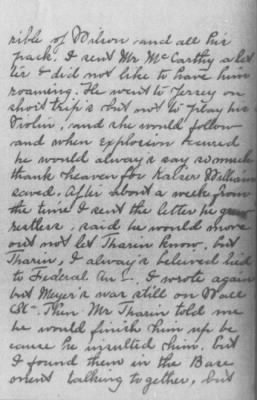 rible of Wilson and all his
pack. I sent Mr McCarthy a let
ter & did not like to have him
roaming. He went to Jersey on
short trips but not to play his
Violin, and she would follow
and when explosion occured
he would always say so much
thank heaven for Kaiser William
saved. After about a week from
the time I sent the letter he grew
restless, said he would move
out not let Tharin know, but
Tharin, I always beleived lied
to Federal I wrote again
but Meyer's was still on Wall
St - Then Mr Tharin told me
he would finish him up be
cause he insulted him, but
I found them in the Base
ment talking together, but